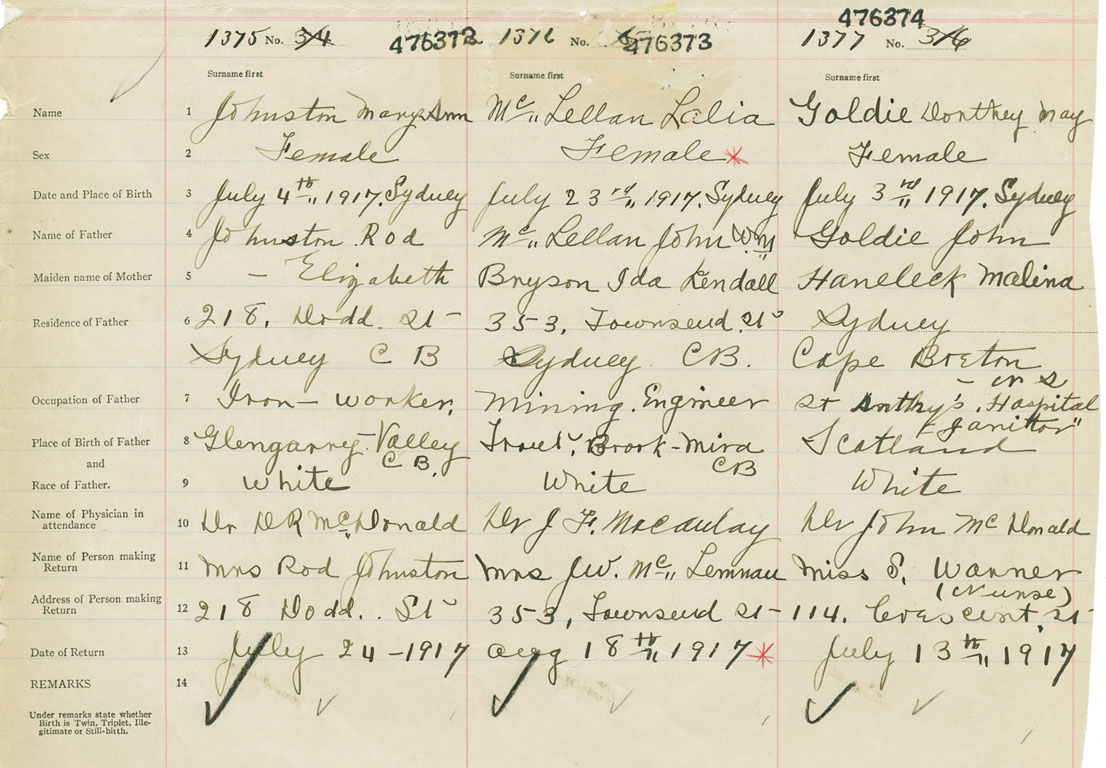 476374
1375 No. 314 476372 1371 No. 476373 1377 No. 316
Surname first Surname first Surname first
Name 1 Johnston Mary Ann Mc„ Lellan Lelia Goldie Dorthey May
Sex 2 Female Female Female
Date and Place of Birth 3 July 4th„ 1917. Sydney July 23rd„ 1917. Sydney July 3rd„ 1917. Sydney
Name of Father 4 Johnston Rod Mc„ Lellan John Wm Goldie John
Maiden name of Mother 5 — Elizabeth Bryson Ida Kendall Haneleck Malina
Residence of Father 6 218, Dodd. St 353, Townsend. St Sydney
Sydney C B Sydney CB. Cape Breton
— N S
Occupation of Father 7 Iron — worker, Mining. Engineer St Anthy's. Hospital
"Janittor"
Place of Birth of Father 8 Glengarry Valley Trout, Brook-Mira Scotland
and C B. CB
Race of Father. 9 White White White
Name of Physician in
attendance 10 Dr D R Mc„Donald Dr J F. Macaulay Dr John McDonald
Name of Person making
Return 11 Mrs Rod Johnston Mrs J.W. Mc„ Lennan Miss S. Warner
(Nurse)
Address of Person making
Return 12 218 Dodd.. St 353, Townsend St 114. Crescent, St
Date of Return 13 July 24 — 1917 Aug 18th„ 1917 July 13th„ 1917
REMARKS 14
Under remarks state whether
Birth is Twin, Triplet, Ille-
gitimate or Still-birth.